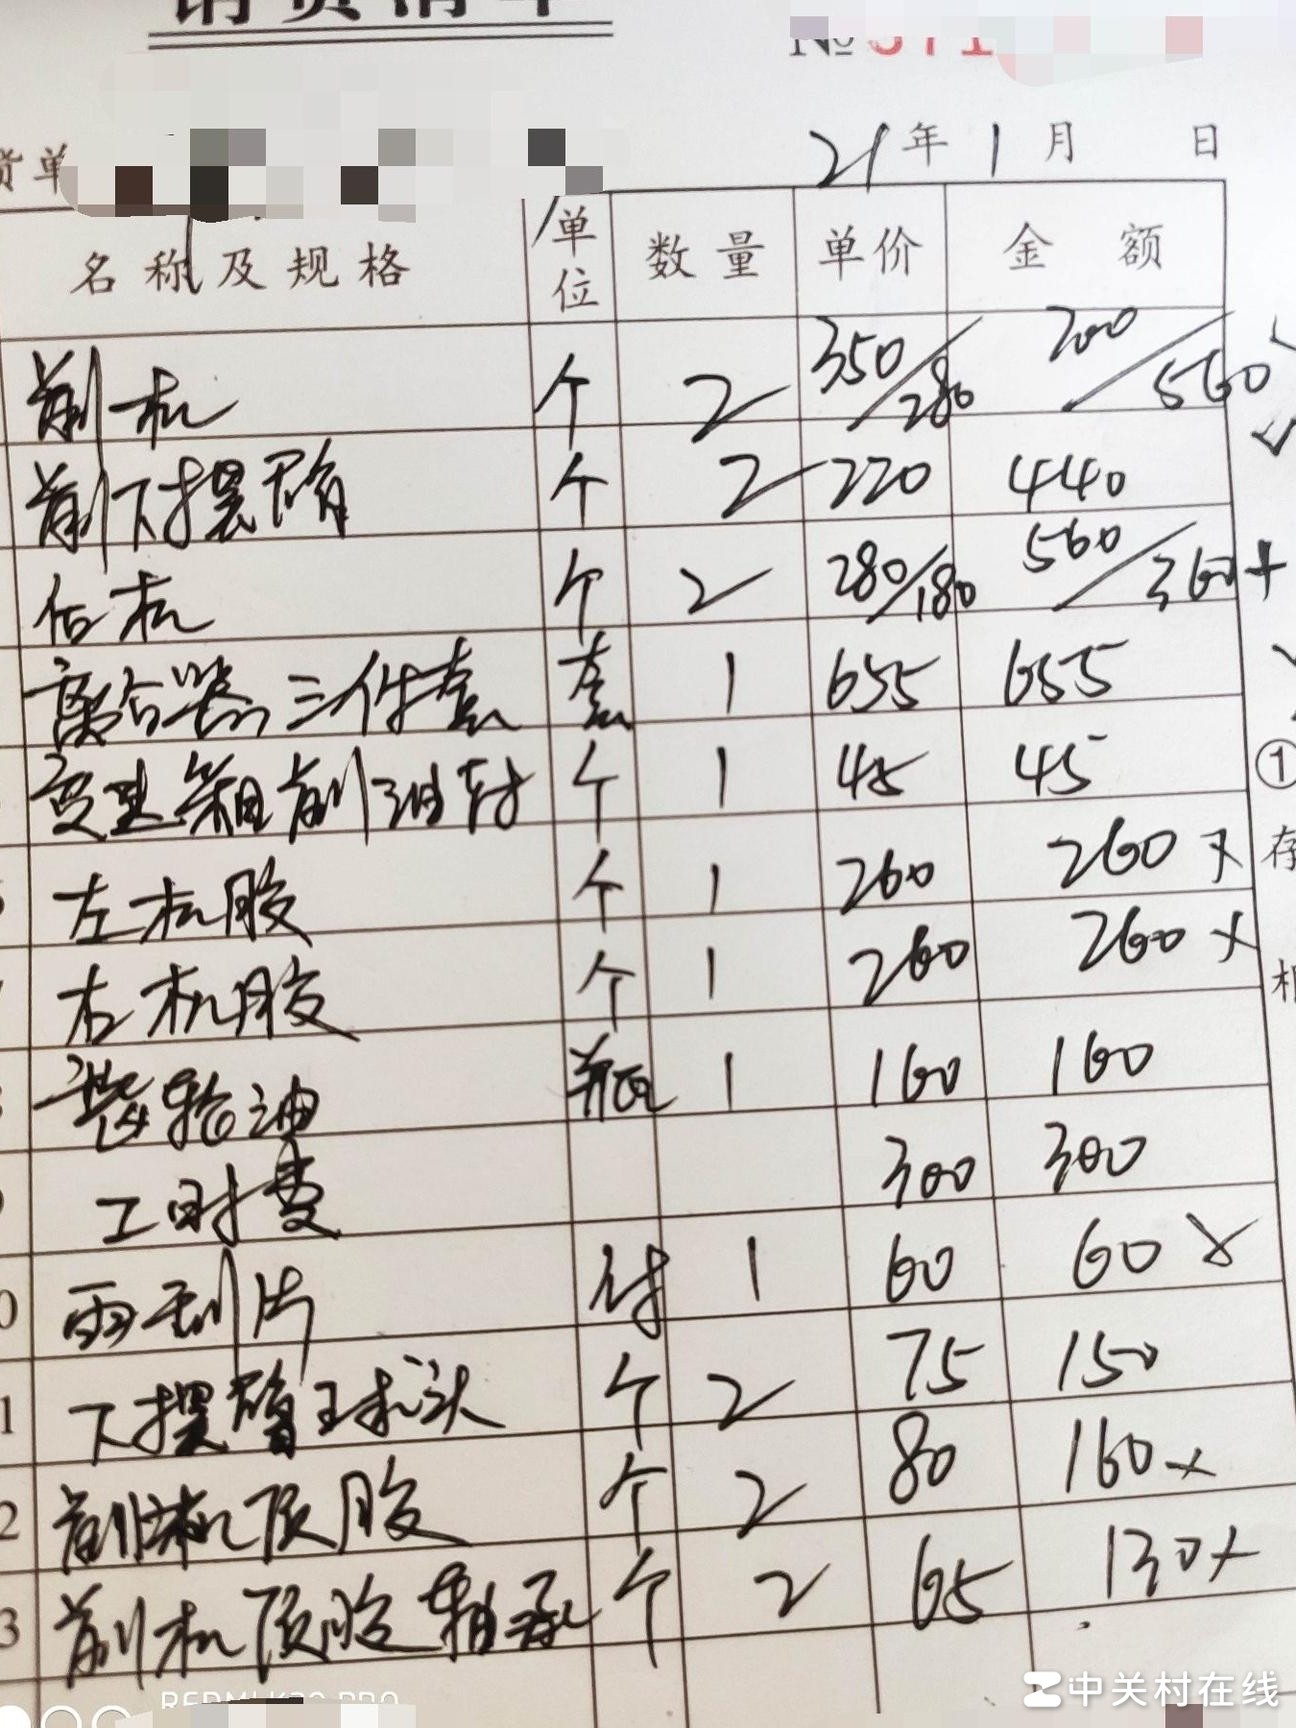 销货清单
№ 371
货单
21年1月 日
名称及规格 单位 数量 单价 金额
前机 个 2 350/280 700/560
前下摆臂 个 2 220 440
后机 个 2 280/180 560/360 +
离合器三件套 套 1 655 655
变速箱前油封 个 1 45 45
左机胶 个 1 260 260 ×
右机胶 个 1 260 260 ×
齿轮油 瓶 1 160 160
工时费 300 300
雨刮片 付 1 60 60 ×
下摆臂球头 个 2 75 150
前机顶胶 个 2 80 160 ×
前机顶胶轴承 个 2 65 130 ×
①
存
REDMI K30 PRO
中关村在线